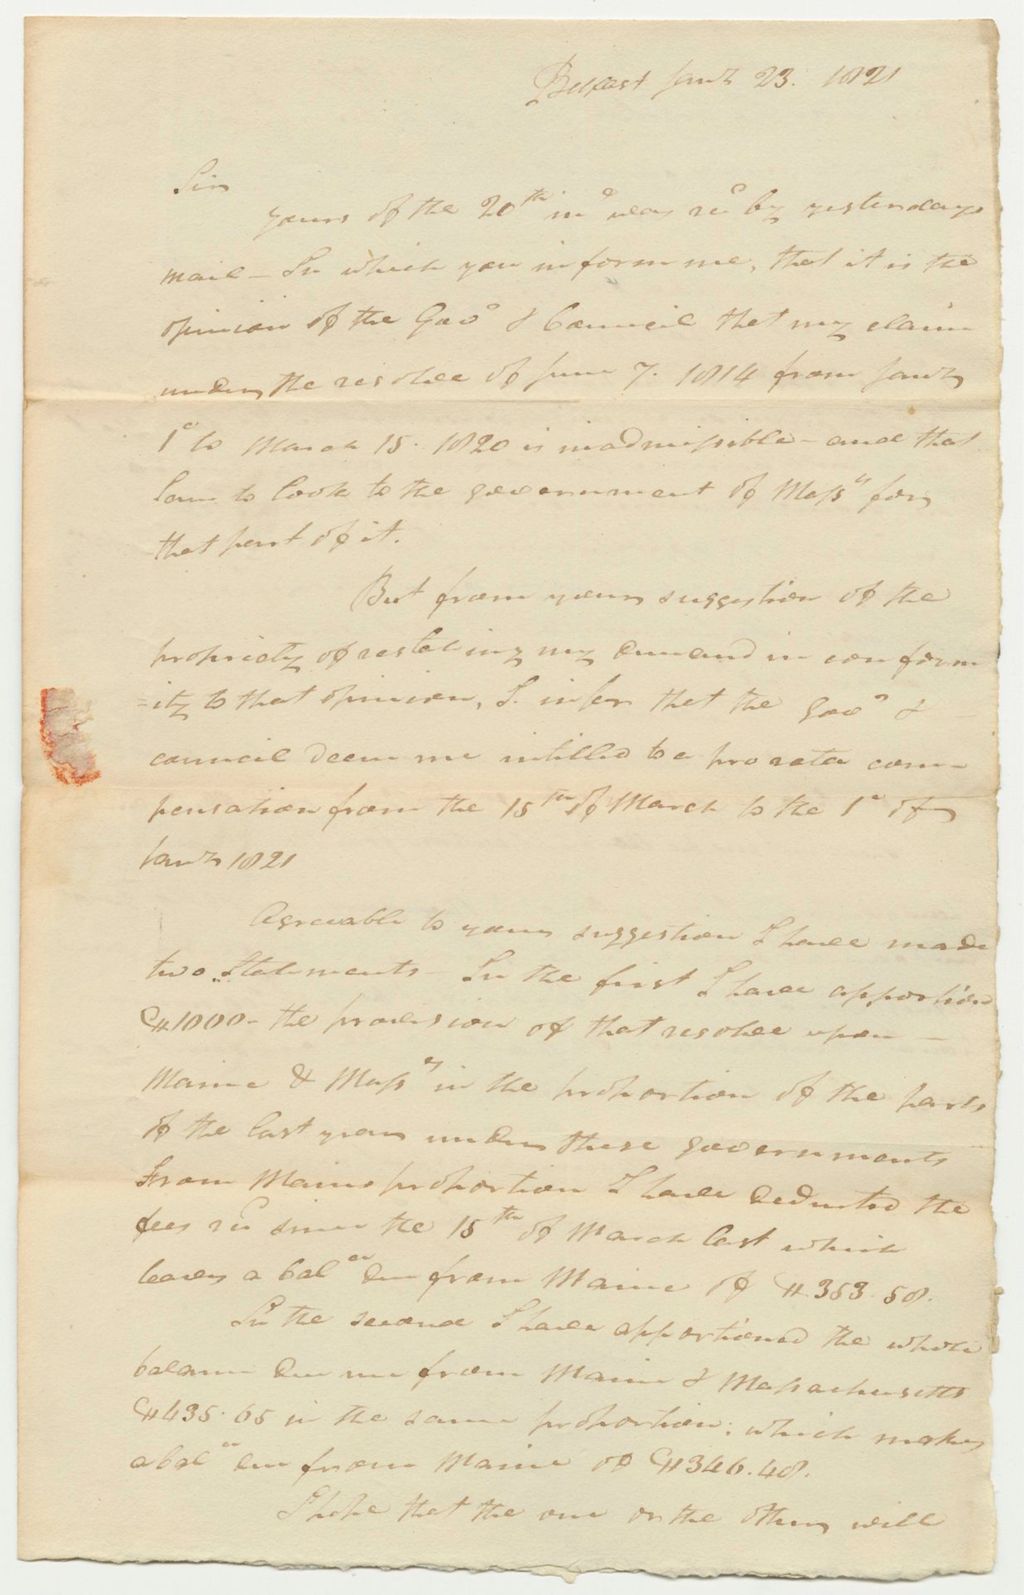 Belfast Jany 23. 1821
Sir
yours of the 20th ins was recd by yesterdays
mail - In which you inform me, that it is the
opinion of the Govr & Council that my claim
under the resolve of June 7. 1814 from Jany
1st to March 15. 1820 is inadmissible - and that
I am to look to the government of Massts for
that part of it.
But from your suggestion of the
propriety of restating my demand in conform
=ity to that opinion, I infer that the Govr &
council deem me intitled to a pro rata com-
pensation from the 15th of March to the 1st of
Jany 1821
Agreeable to your suggestion I have made
two Statements - In the first I have apportiond
$1000 - the provision of that resolve upon -
Maine & Massts in the proportion of the parts
of the last year under these governments
From Mains proportion I have deducted the
fees recd since the 15th of March last which
leaves a balce due from Maine of $353.58.
In the second I have apportioned the whole
balance due me from Maine & Massachusetts
$435.65 in the same proportion; which makes
a balce due from Maine of $346.48.
I hope that the one or the other will